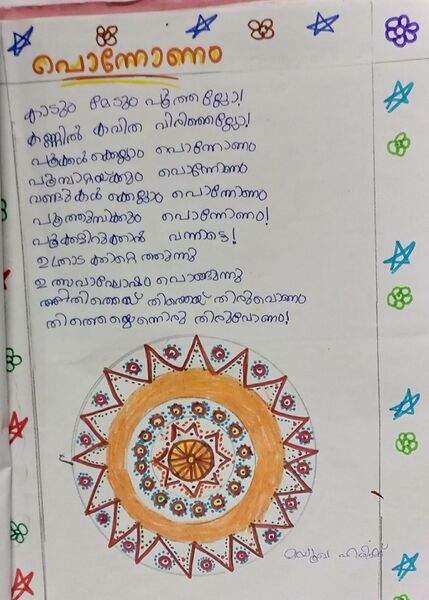 പൊന്നോണം
കാടും മേടും പൂത്തല്ലോ!
കണ്ണിൽ കവിത വിരിഞ്ഞല്ലോ!
പൂക്കൾക്കെല്ലാം പൊന്നോണം
പൂമ്പാറ്റയ്ക്കും പൊന്നോണം
വണ്ടുകൾക്കെല്ലാം പൊന്നോണം
പൂത്തുമ്പിക്കും പൊന്നോണം!
പൂക്കളിറുക്കാൻ വന്നിടൈ!
ഉത്സവാഘോഷം പൊങ്ങുന്നു
തിത്തെയ് തിത്തെയ് തിരുവോണം
തിരുവോണം!